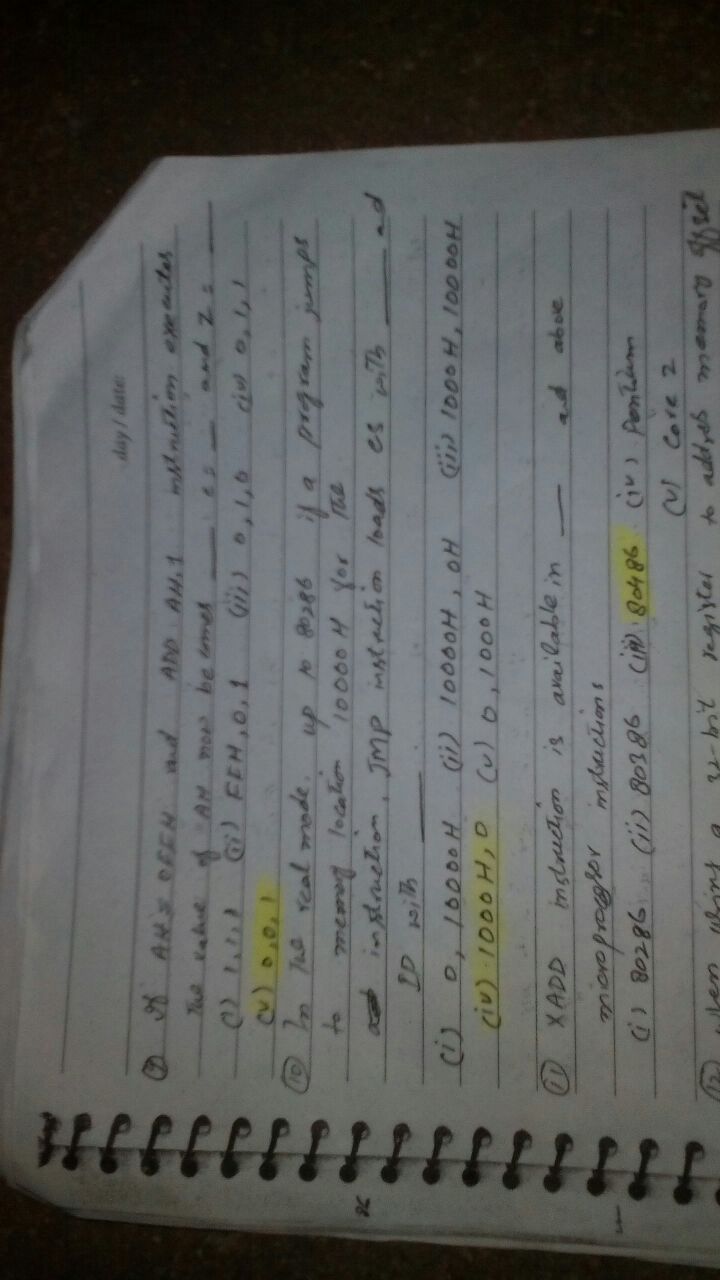 day / date:
(9) If AH = 0FFH and ADD AH,1 instruction executes
The value of AH now becomes ___ cs ___ and Z = ___
(i) 1,1,1 (ii) FFH,0,1 (iii) 0,1,0 (iv) 0,1,1
(v) 0,0,1
(10) In the real mode, up to 80286 if a program jumps
to memory location 10000H for the
instruction, JMP instruction loads cs with ___ ad
IP with ___.
(i) 0, 10000H (ii) 10000H, 0H (iii) 1000H, 10000H
(iv) 1000H, 0 (v) 0, 1000H
(11) XADD instruction is available in ___ ad above
microprocessor instructions
(i) 80286 (ii) 80386 (iii) 80486 (iv) Pentium
(v) Core 2
(12) when using a 32-bit register to address memory offset